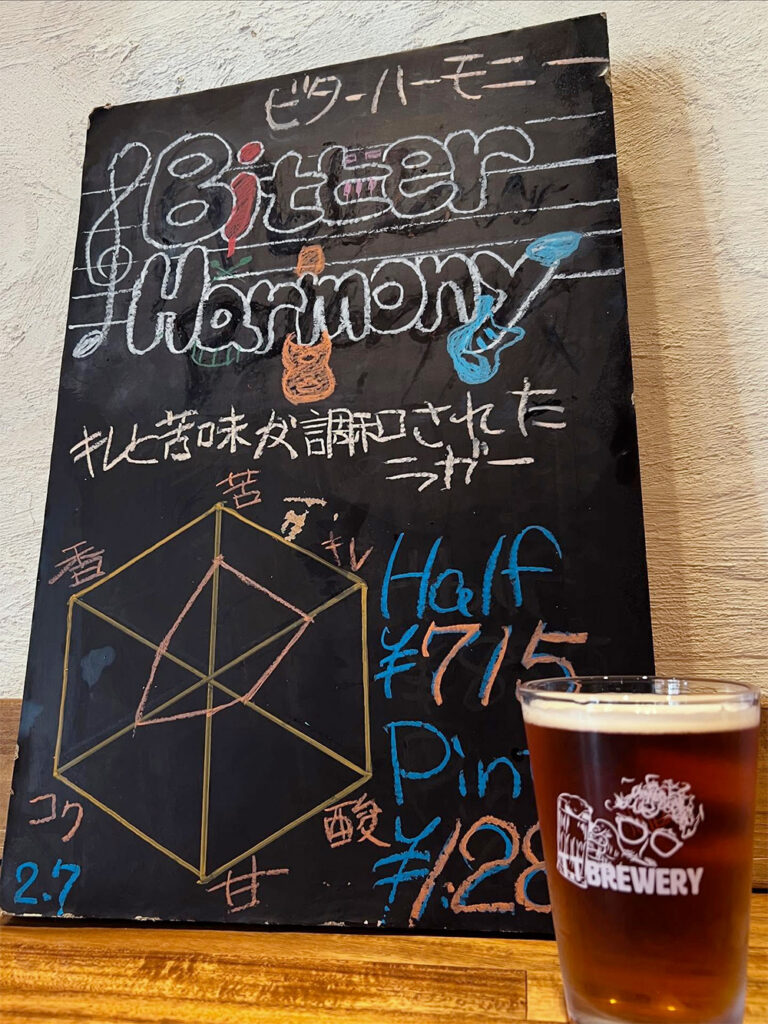 ビターハーモニー
Bitter
Harmony
キレと苦味が調和された
ラガー
苦
キレ
香
Half
¥715
Pint
¥1.28
コク
酸
甘
2.7
BREWERY